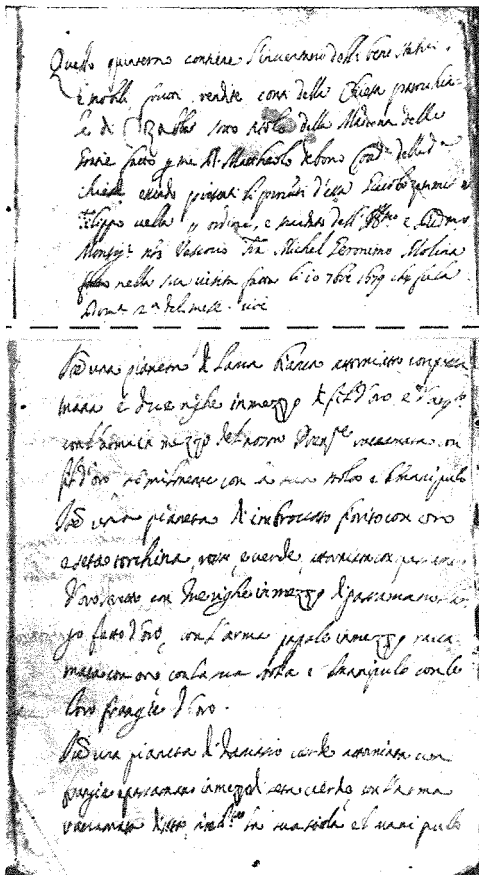 Questo quinterno contiene l'inventario delli beni stabili,
e mobili, frutti, rendite censi della Chiesa parochia
le di sotto titolo della Madonna delle
Gratie fatto p me D. Mattheolo debono della d.
chiesa essendo presenti li procuri d'essa Jacobo e
Filippo vella p ordine, e mandato dell' Ill.mo e
Monsig.r nro Vescovo Fra Michel Geronimo Molina
fatto nella sua visita fatta li 10 7bre 1679 che fu la
Dom.ca 2.a del mese
Itẽ una pianeta di lama bianca attorniata con passa
mana e due righe in mezzo di fil d'oro, e
con l'arma in mezzo del raccamata con
fil d'oro similmente con la sua stola e Manipulo
Itẽ una pianeta d'imbroccato fiorito con oro
e seta torchina, rossa, e verde, attorniata con passamano
d'oro con due righe in mezzo di passamano lar
go fatto d'oro, con l'arma papale in mezzo racca
mata con oro con la sua stola e Manipulo con le
loro frangie d'oro.
Itẽ una pianeta di damasco verde attorniata con
frangia e passamano in mezzo di seta verde con l'arma
raccamata la sua stola, e manipulo